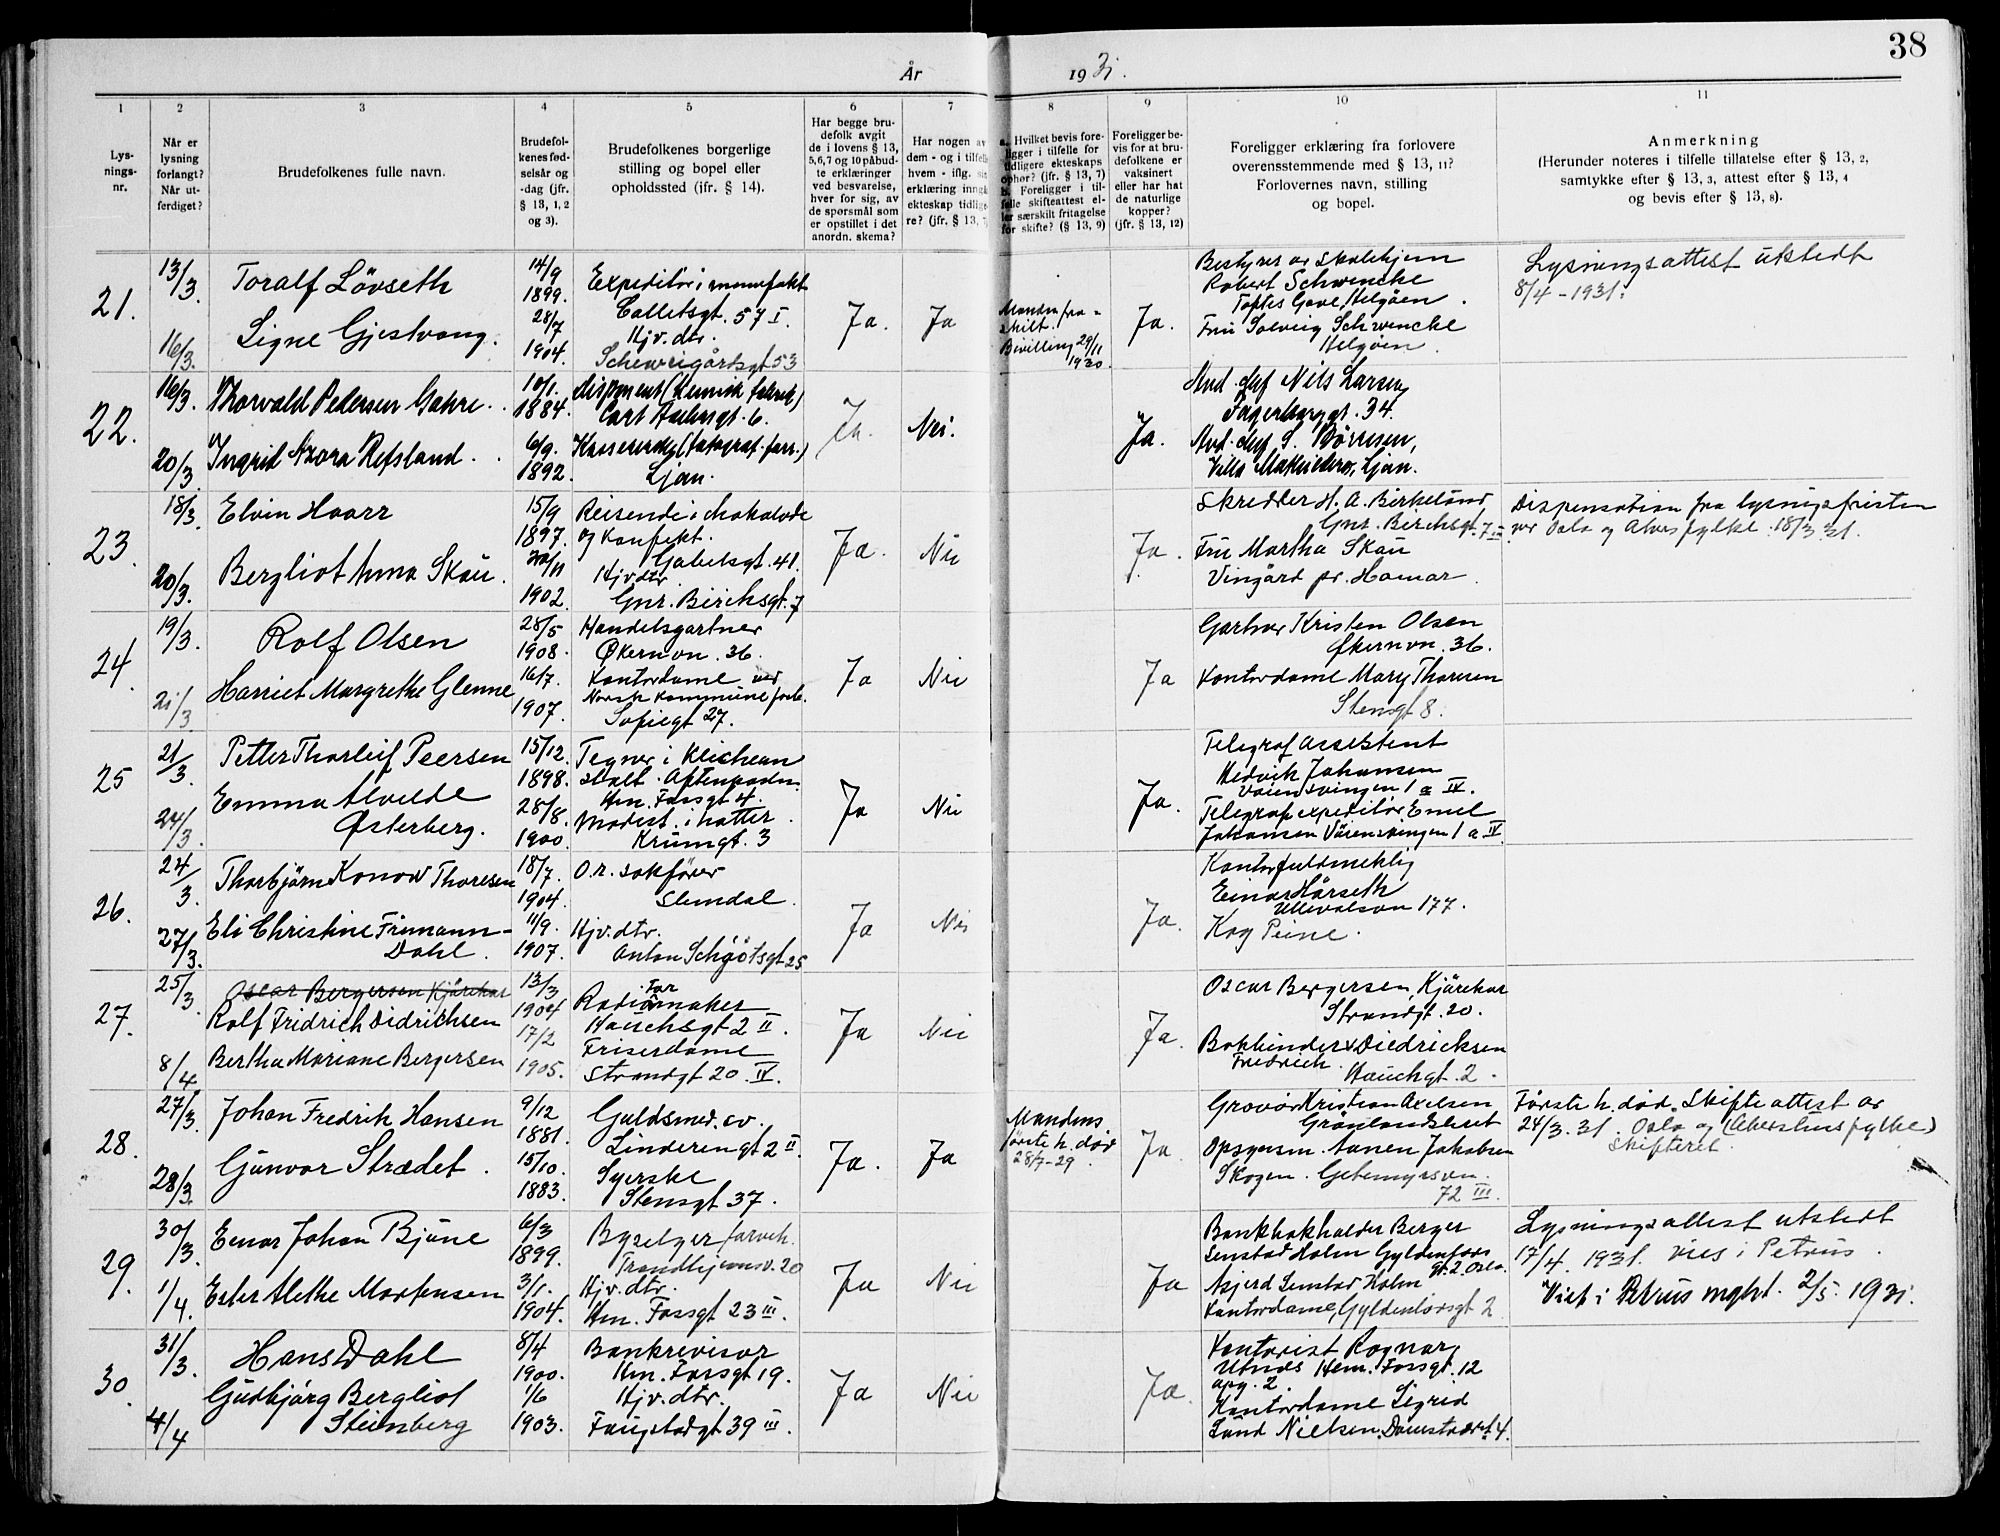 38
År 1931.
1 2 3 4 5 6 7 8 9 10 11
Lys-
nings-
nr.
Når er
lysning
forlangt?
Når ut-
ferdiget?
Brudefolkenes fulle navn.
Brudefol-
kenes fød-
selsår og
-dag (jfr.
§ 13, 1, 2
og 3).
Brudefolkenes borgerlige
stilling og bopel eller
opholdssted (jfr. § 14).
Har begge bru-
defolk avgit
de i lovens § 13,
5,6,7 og 10 påbud-
te erklæringer
ved besvarelse,
hver for sig, av
de spørsmål som
er opstillet i det
anordn. skema?
Har nogen av
dem - og i tilfelle
hvem - iflg. sin
erklæring inngått
ekteskap tidlige-
re? (jfr. § 13, 7)
a. Hvilket bevis fore-
ligger i tilfelle for
tidligere ekteskaps
ophør? (jfr. § 13, 7)
b. Foreligger i til-
felle skifteattest el-
ler særskilt fritagelse
for skifte? (§ 13, 9)
Foreligger be-
vis for at bru-
defolkene er
vaksinert
eller har hat
de naturlige
kopper?
(jfr. § 13, 12)
Foreligger erklæring fra forlovere
overensstemmende med § 13, 11?
Forlovernes navn, stilling
og bopel.
Anmerkning
(Herunder noteres i tilfelle tillatelse efter § 13, 2,
samtykke efter § 13, 3, attest efter § 13, 4
og bevis efter § 13, 8).
21.
13/3
16/3.
Toralf Lövseth
Signe Gjestvang.
14/9
1899.
28/7
1904.
Expeditör i manufakt
Calletsgt. 57 I.
Hjv. dtr.
53
Ja.
Ja
Manden fra-
skilt.
Bevilling 29/11
1930.
Ja.
Bestyrer av skolehjem
Robert Schwencke
Toftes Gave, Helgöen.
Fru Solveig Schwencke
Helgöen.
Lysningsattest utstedt
8/4-1931.
22.
16/3.
20/3.
Thorvald Pedersen
Ingrid Refsland.
10/1.
1884.
6/9.
1892.
gt. 6.
Ljan.
Ja.
Nei.
Ja.
Nils Larsen
Fagerborggt. 34.
Ljan.
23.
18/3
20/3.
Elvin Haarr
Bergliot Anna Skau.
15/9
1897.
/11
1902.
Reisende i chokolade
og konfekt.
Gabelsgt. 41.
Hjv. dtr
Gnr. Birchsgt. 7
Ja.
Nei
Ja.
Skredder H. A. Birkelund
Gnr. Birchsgt. 7
Fru Martha Skau
Vingård pr. Hamar.
Dispensation fra lysningsfristen
ver Oslo og fylke. 18/3.31.
24.
19/3.
21/3
Rolf Olsen
Harriet Margrethe Glenne
28/5
1908.
16/7.
1907.
Handelsgartner
Økernvn. 36.
Kontordame ved
Norsk Kommune forb.
Sofiegt 27.
Ja
Nei
Ja
Gartner Kristen Olsen
Økernvn. 36.
Kontordame Mary Thoresen
Stensgt 8.
25
21/3.
24/3.
Petter Thorleif Peersen
Emma Alvilde
Østerberg.
15/12.
1898.
28/8.
1900.
Tegner i Klichean
stalt. Aftenposten
Hm. Fossgt 4.
Modist. i hatter.
Krumgt. 3
Ja
Nei
Ja.
Telegraf assistent
Johansen
1 a IV.
Telegrafexpeditör Emil
Johansen 1 a IV
26.
24/3.
27/3.
Thorbjörn Konow Thoresen
Eli Christine Frimann-
Dahl.
18/7.
1904.
11/9.
1907.
O.r. sakförer
Slemdal.
Hjv. dtr.
Anton Schjötsgt 25
Ja
Nei
Ja.
Kontorfuldmektig
Einar Hårseth
Ullevolsvn 177.
Kay Peine.
27.
25/3.
8/4
Oscar Bergersen Kjörekar
Rolf Fridrich Didrichsen
Bertha Mariane Bergersen
13/3
1904
17/2
1905.
Radioformaker
Hauchsgt 2 II.
Friserdame
Strandgt 20 IV.
Ja
Nei
Ja.
Oscar Bergersen, Kjörekar
Strandgt. 20.
Bokbinder Diedricksen
Fredrich. Hauchgt. 2.
28.
27/3.
28/3.
Johan Fredrik Hansen
Gunvor Strædet.
9/12
1881.
15/10.
1883.
Guldsmed. sv.
Linderengt 2 II.
Syerske
Stensgt 37.
Ja.
Ja
Mandens
förste h. död
28/7-29.
Ja.
Gravör Kristian Axelsen
Opsynsm. Jakobsen
Skogen.
72 III.
Förste h. död. Skifteattest av
24/3.31. Oslo og (Akershus fylke)
skifteret.
29.
30/3.
1/4.
Einar Johan Bjune
Ester Alethe Mortensen
6/3
1899.
3/1.
1904.
Byselger farveh.
Trondhjemsv. 20
Hjv. dtr.
Hm. Fossgt 23 III.
Ja
Nei
Ja
Bankbokholder Berger
Senstad Holm Gyldenlövs
gt. 2. Oslo.
Senstad Holm
Kontordame, Gyldenlövsgt 2
Lysningsattest utstedt
17/4. 1931. vies i Petrus.
Viet i Petrus mght. 2/5. 1931.
30.
31/3.
4/4
Hans Dahl
Gudbjörg Bergliot
Steinberg
8/4
1900.
1/6
1903.
Bankrevisor
Hm. Fossgt 19.
Hjv. dtr.
Faugstadgt 39 III.
Ja
Nei
Ja.
Kontorist Ragnar
Utnes Hem. Fossgt. 12
opg. 2.
Kontordame Sigrid
Lund Nielsen. Damstrædet 4.